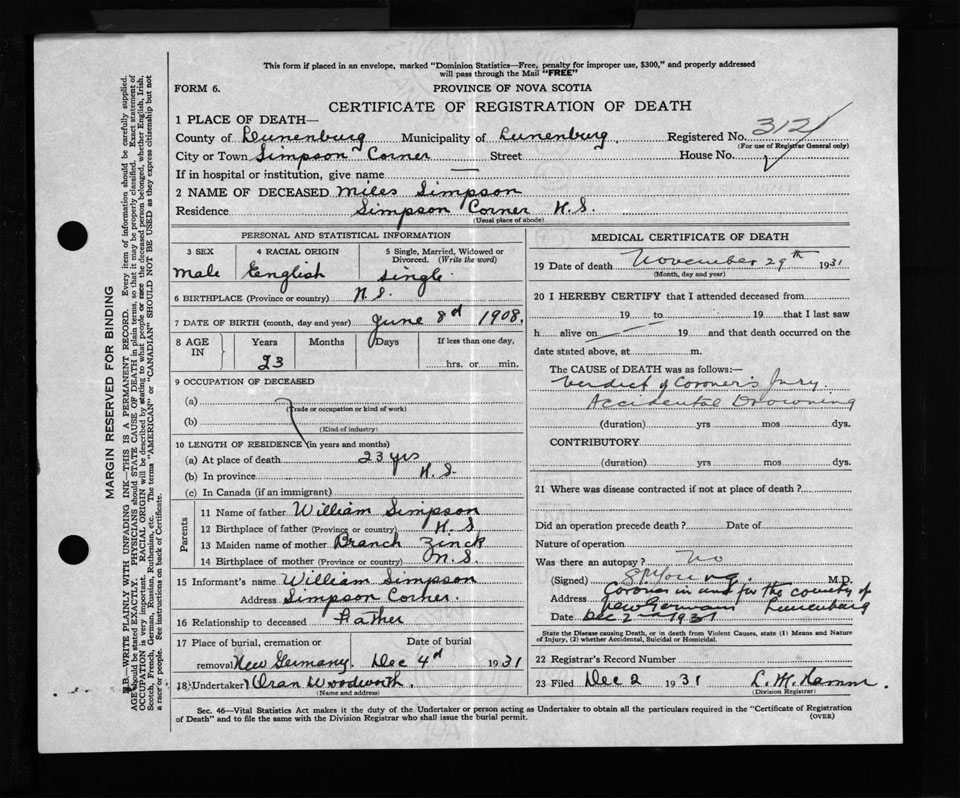 This form if placed in an envelope, marked "Dominion Statistics—Free, penalty for improper use, $300," and properly addressed
will pass through the Mail "FREE"
FORM 6.
PROVINCE OF NOVA SCOTIA
CERTIFICATE OF REGISTRATION OF DEATH
1 PLACE OF DEATH—
County of Lunenburg Municipality of Lunenburg Registered No. 3121
(For use of Registrar General only)
City or Town Simpson Corner Street House No.
If in hospital or institution, give name —
2 NAME OF DECEASED Miles Simpson
Residence Simpson Corner N.S.
(Usual place of abode)
PERSONAL AND STATISTICAL INFORMATION
3 SEX 4 RACIAL ORIGIN 5 Single, Married, Widowed or
Divorced. (Write the word)
Male English Single
6 BIRTHPLACE (Province or country) N.S.
7 DATE OF BIRTH (month, day and year) June 8d 1908.
8 AGE IN Years Months Days If less than one day,
23 hrs. or min.
9 OCCUPATION OF DECEASED
(a)
(Trade or occupation or kind of work)
(b)
(Kind of industry)
10 LENGTH OF RESIDENCE (in years and months)
(a) At place of death 23 yrs
(b) In province N.S.
(c) In Canada (if an immigrant)
Parents
11 Name of father William Simpson
12 Birthplace of father (Province or country) N.S.
13 Maiden name of mother Branch Zinck
14 Birthplace of mother (Province or country) N.S.
15 Informant's name William Simpson
Address Simpson Corner.
16 Relationship to deceased Father
17 Place of burial, cremation or Date of burial
removal New Germany. Dec 4d 1931
18 Undertaker Oran Woodworth.
(Name and address)
MEDICAL CERTIFICATE OF DEATH
19 Date of death November 29th 1931
(Month, day and year)
20 I HEREBY CERTIFY that I attended deceased from
19 to 19 that I last saw
h alive on 19 and that death occurred on the
date stated above, at m.
The CAUSE of DEATH was as follows:—
Verdict of Coroner's Jury.
Accidental Drowning
(duration) yrs mos dys.
CONTRIBUTORY
(duration) yrs mos dys.
21 Where was disease contracted if not at place of death?
Did an operation precede death? Date of
Nature of operation
Was there an autopsy? No
(Signed) M.D.
Coroner in and for the county of
Address New Germany Lunenburg
Date Dec 2 1931
State the Disease causing Death, or in death from Violent Causes, state (1) Means and Nature
of Injury, (2) whether Accidental, Suicidal or Homicidal.
22 Registrar's Record Number
23 Filed Dec 2 1931
(Division Registrar)
Sec. 46—Vital Statistics Act makes it the duty of the Undertaker or person acting as Undertaker to obtain all the particulars required in the "Certificate of Registration
of Death" and to file the same with the Division Registrar who shall issue the burial permit.
(OVER)
MARGIN RESERVED FOR BINDING
N.B.—WRITE PLAINLY WITH UNFADING INK—THIS IS A PERMANENT RECORD. Every item of information should be carefully supplied.
AGE should be stated EXACTLY. PHYSICIANS should STATE CAUSE OF DEATH in plain terms, so that it may be properly classified. Exact statement of
OCCUPATION is very important. RACIAL ORIGIN will be described by stating to what people or race the deceased person belonged, whether English, Irish,
Scotch, French, German, Russian, Ruthenian, etc. The terms "AMERICAN" or "CANADIAN" SHOULD NOT BE USED as they express citizenship but not
a race or people. See instructions on back of Certificate.